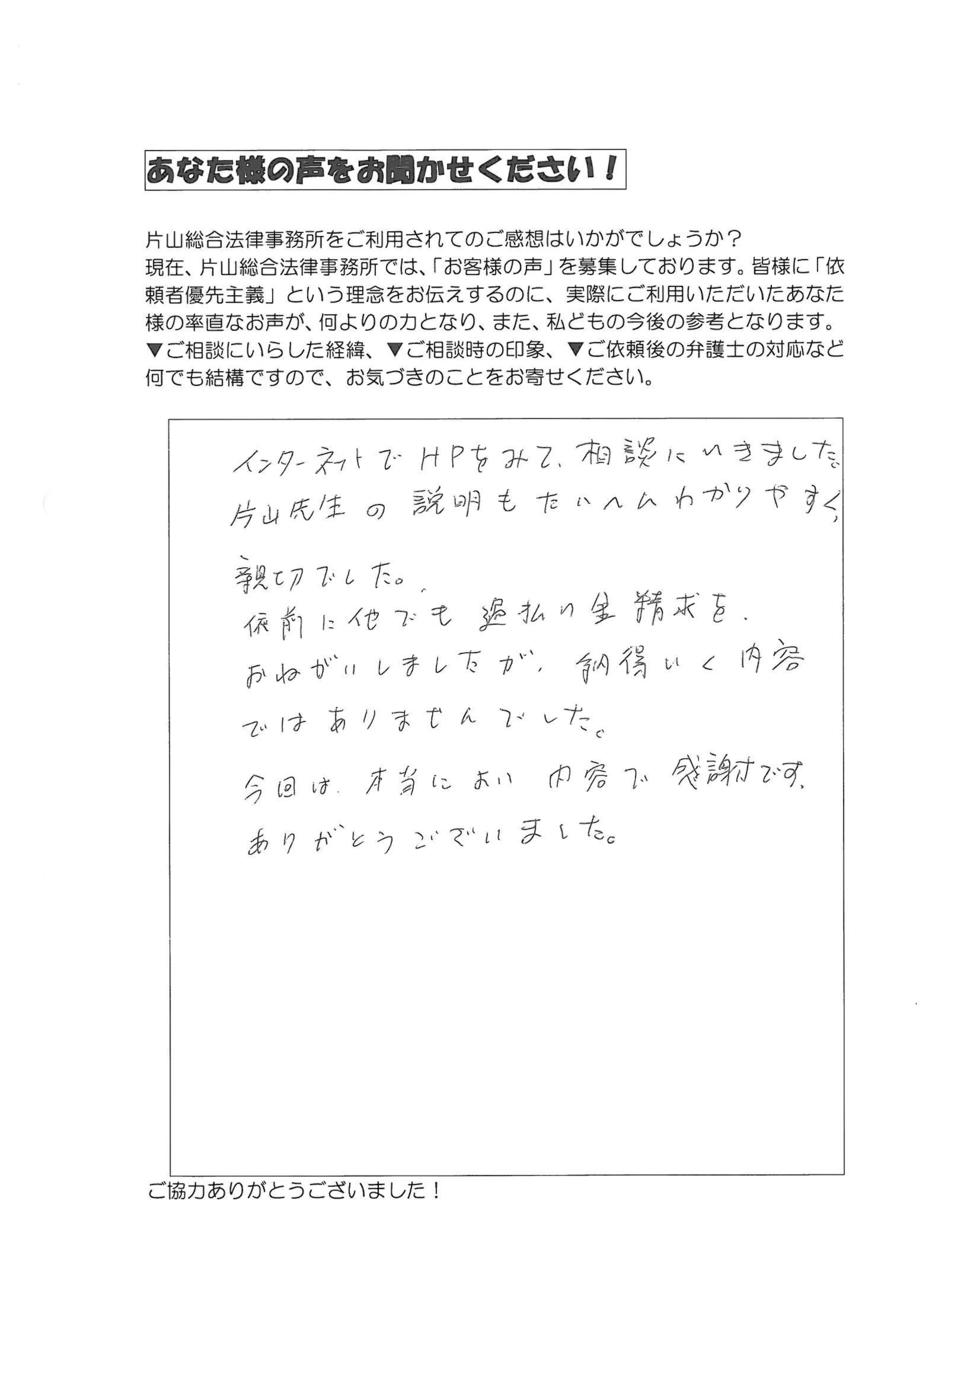 あなた様の声をお聞かせください！
片山総合法律事務所をご利用されてのご感想はいかがでしょうか？
現在、片山総合法律事務所では、「お客様の声」を募集しております。皆様に「依
頼者優先主義」という理念をお伝えするのに、実際にご利用いただいたあなた
様の率直なお声が、何よりの力となり、また、私どもの今後の参考となります。
▼ご相談にいらした経緯、▼ご相談時の印象、▼ご依頼後の弁護士の対応など
何でも結構ですので、お気づきのことをお寄せください。
インターネットでHPをみて、相談にいきました。
片山先生の説明もたいへんわかりやすく、
親切でした。
依前に他でも過払い金精求を、
おねがいしましたが、納得いく内容
ではありませんでした。
今回は、本当によい内容で感謝です。
ありがとうございました。
ご協力ありがとうございました！